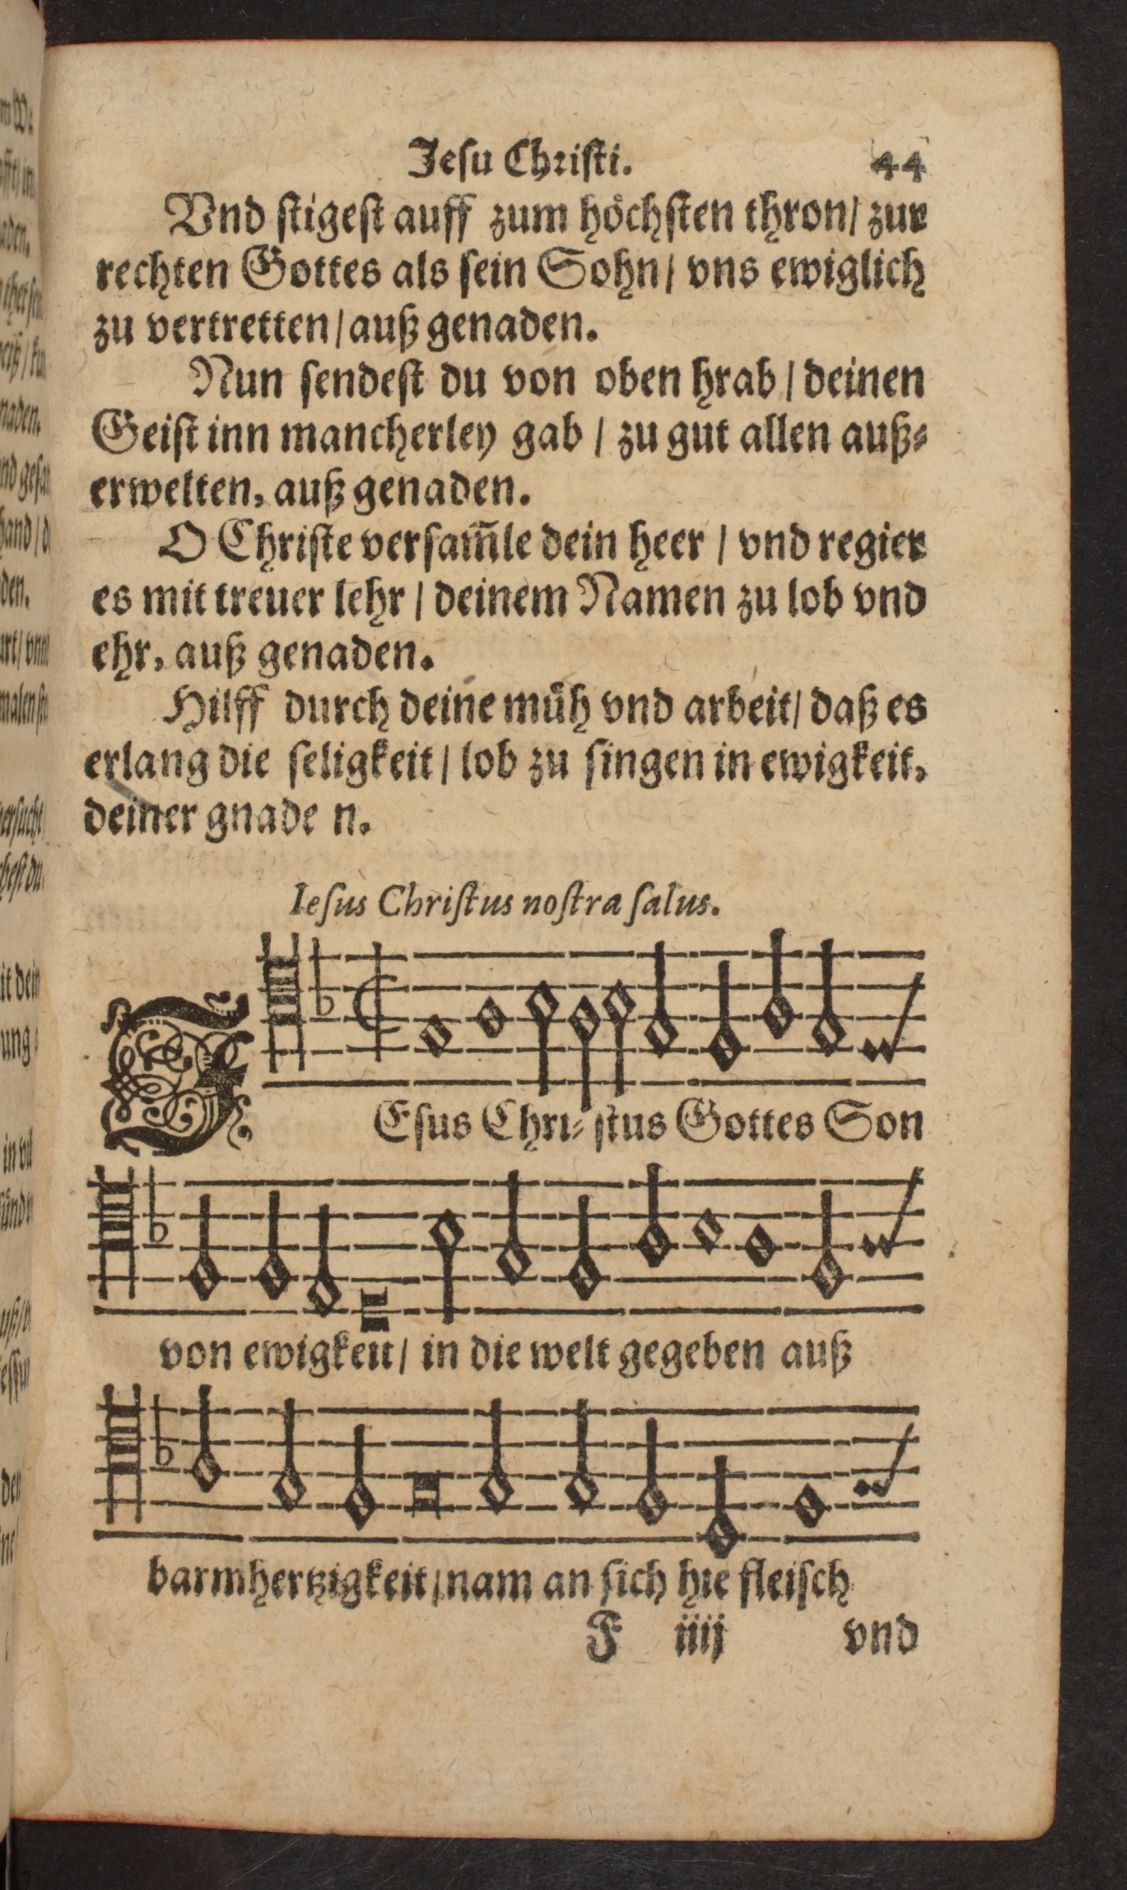 Jesu Christi. 44
Vnd stigest auff zum höchsten thron/ zur
rechten Gottes als sein Sohn/ vns ewiglich
zu vertretten/auß genaden.
Nun sendest du von oben hrab/ deinen
Geist inn mancherley gab / zu gut allen auß⸗
erwelten, auß genaden.
O Christe versam̃le dein heer / vnd regier
es mit treuer lehr / deinem Namen zu lob vnd
ehr, auß genaden.
Hilff durch deine müh vnd arbeit/ daß es
erlang die seligkeit/ lob zu singen in ewigkeit,
deiner gnade n.
Iesus Christus nostra salus.
JEsus Chri⸗ stus Gottes Son
von ewigkeit/ in die welt gegeben auß
barmhertzigkeit/nam an sich hie fleisch
F iiij vnd